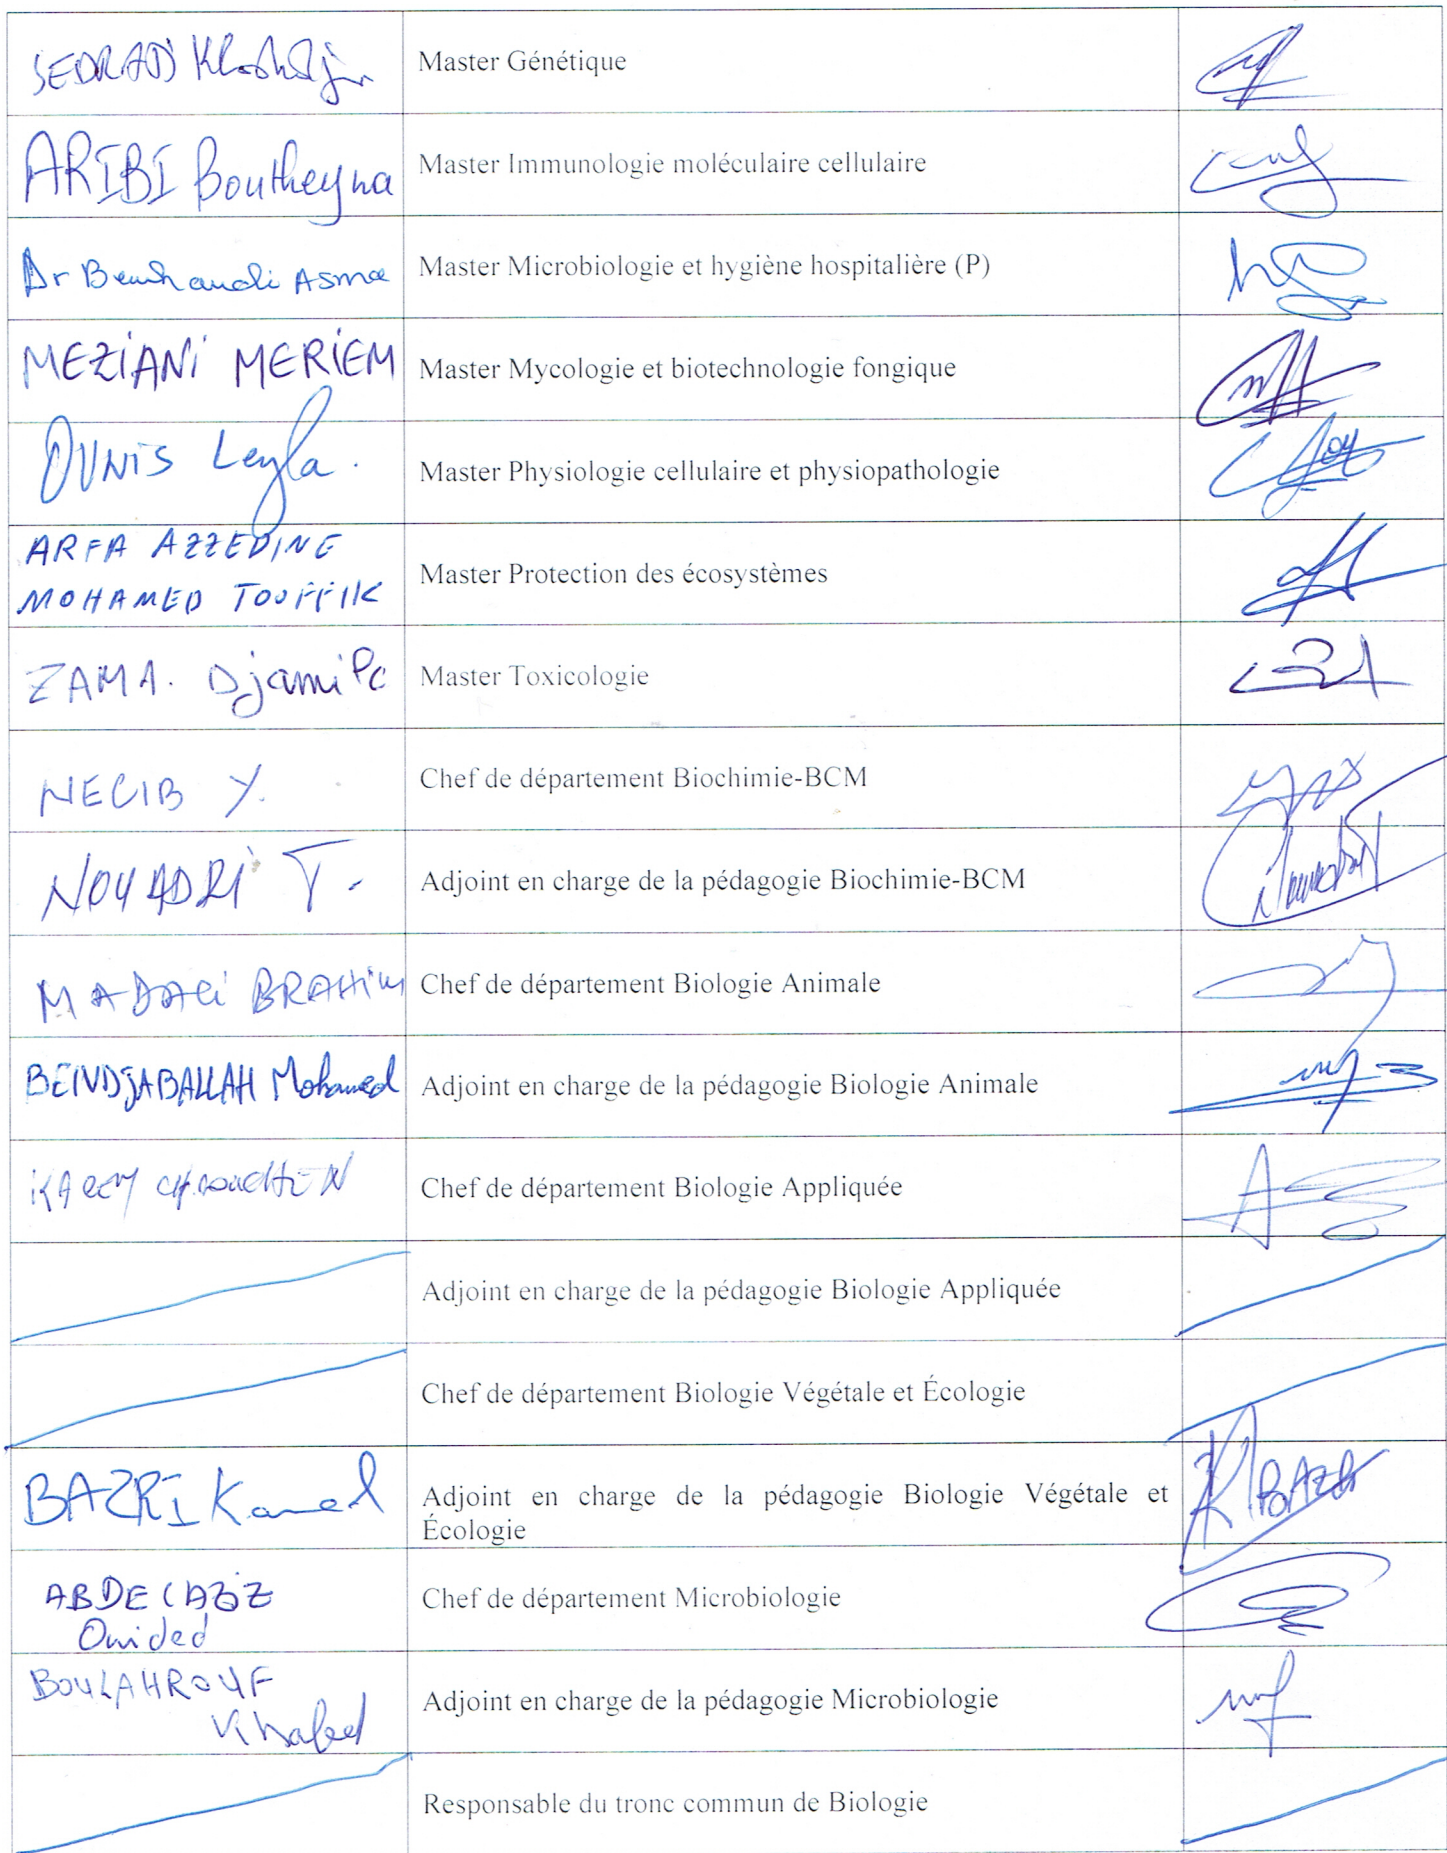 SEDRATI Khadidja
Master Génétique
ARIBI Boutheyna
Master Immunologie moléculaire cellulaire
Dr Benhamdi Asma
Master Microbiologie et hygiène hospitalière (P)
MEZIANI MERIEM
Master Mycologie et biotechnologie fongique
OUNIS Leyla.
Master Physiologie cellulaire et physiopathologie
ARFA AZZEDINE
MOHAMED TOUFFIK
Master Protection des écosystèmes
ZAMA. Djamila
Master Toxicologie
NECIB Y.
Chef de département Biochimie-BCM
NOUADRI T.
Adjoint en charge de la pédagogie Biochimie-BCM
MADACI BRAHIM
Chef de département Biologie Animale
BENDJABALLAH Mohamed
Adjoint en charge de la pédagogie Biologie Animale
Chef de département Biologie Appliquée
Adjoint en charge de la pédagogie Biologie Appliquée
Chef de département Biologie Végétale et Écologie
BAZRI Kamel
Adjoint en charge de la pédagogie Biologie Végétale et
Écologie
BAZRI
ABDELAZIZ
Ouided
Chef de département Microbiologie
BOULAHROUF
Khaled
Adjoint en charge de la pédagogie Microbiologie
Responsable du tronc commun de Biologie